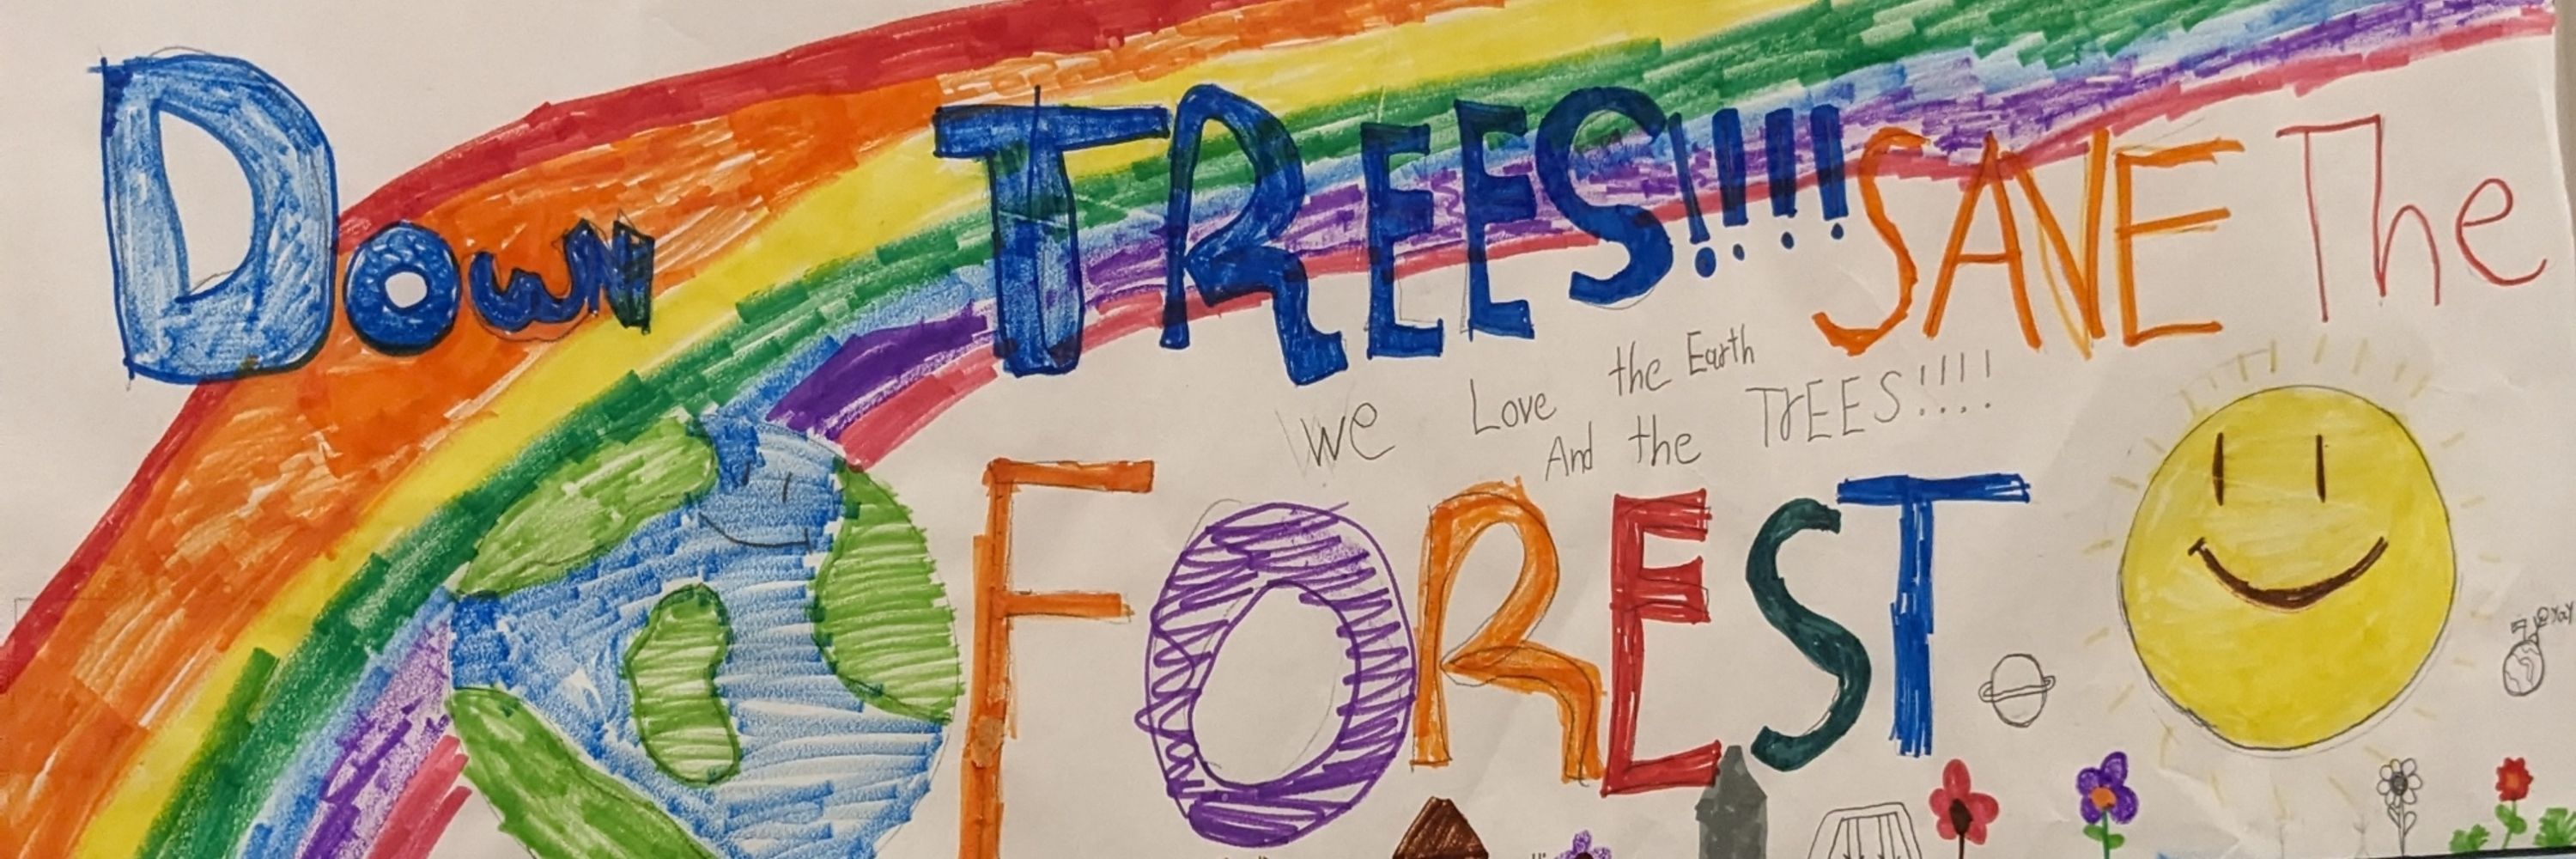 Down TREES!!!! SAVE The
We Love the Earth
And the TREES!!!!
FOREST.
Yay